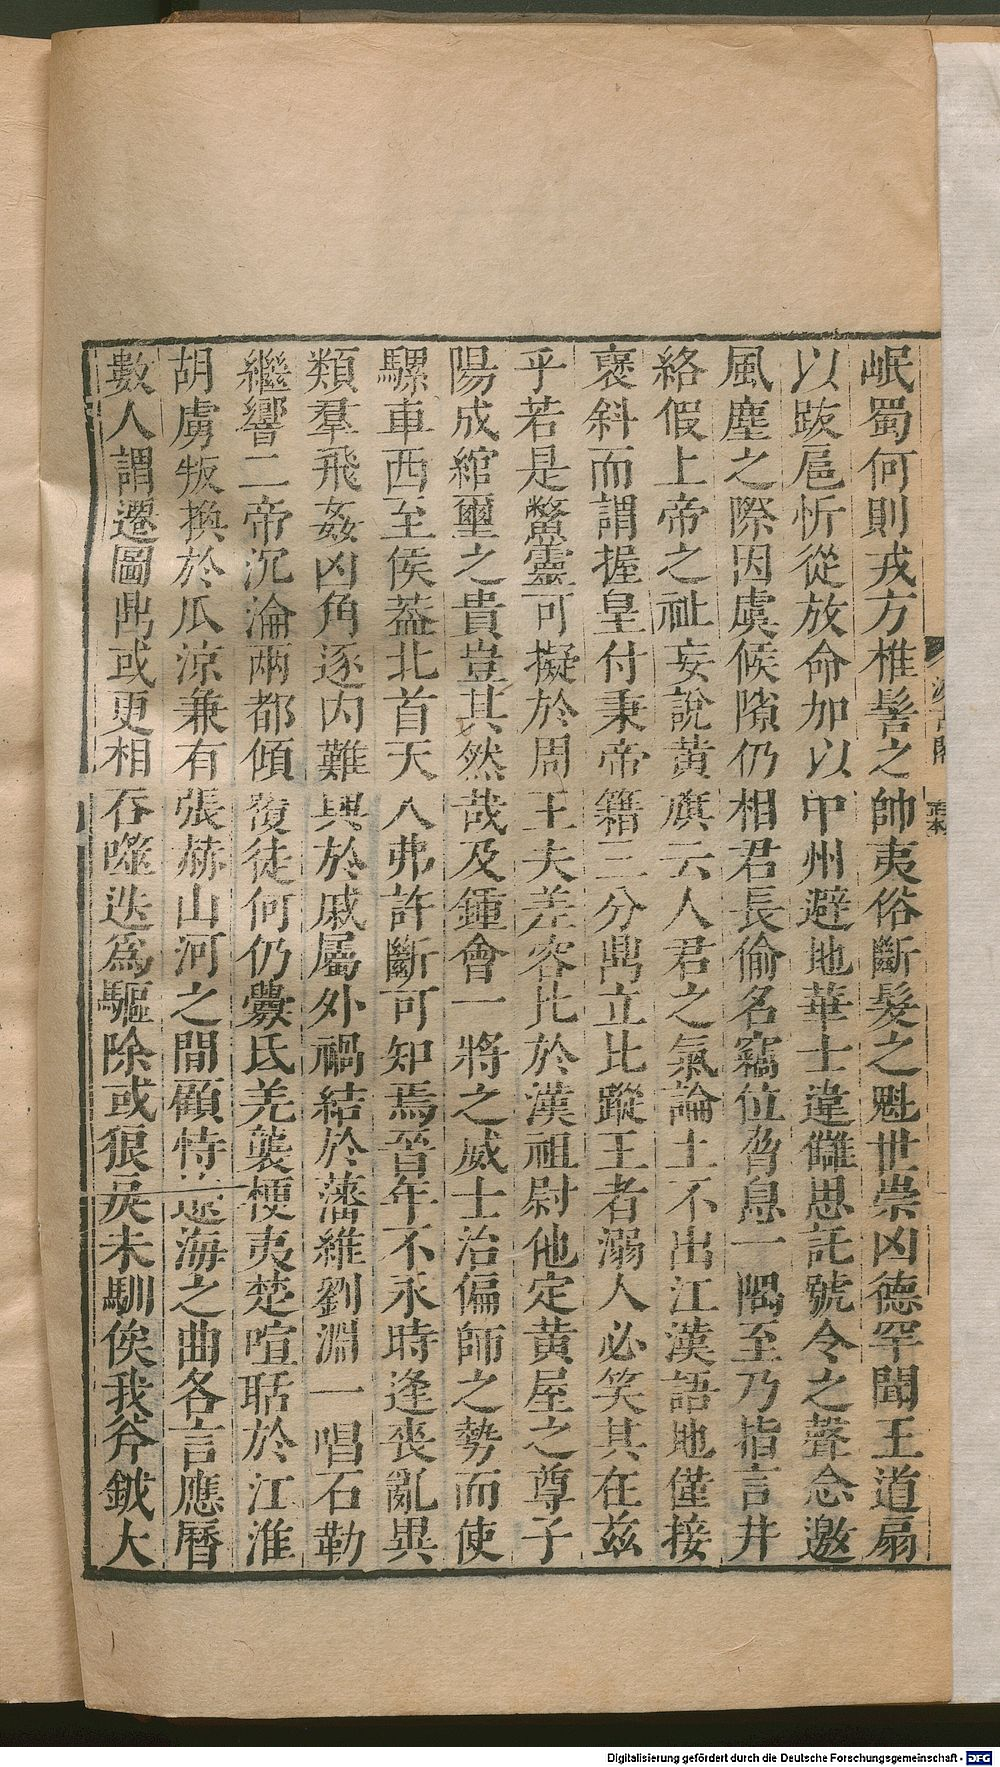 岷蜀何則戎方椎髻之帥夷俗斷髮之魁世崇凶德罕聞王道扇
以跋扈忻從放命加以中州避地華士違讎思託號令之聲念邀
風塵之際因虞候隙仍相君長偷名竊位脅息一隅至乃指言井
絡假上帝之祉妄說黃旗云人君之氣論土不出江漢語地僅接
褒斜而謂握皇付秉帝籍三分鼎立比蹤王者溺人必笑其在茲
乎若是鼈靈可擬於周王夫差容比於漢祖尉他定黃屋之尊子
陽成綰璽之貴豈其然哉及鍾會一將之威士治偏師之勢而使
騾車西至侯葢北首天人弗許斷可知焉晉年不永時逢喪亂異
類羣飛姦凶角逐內難興於戚屬外禍結於藩維劉淵一唱石勒
繼響二帝沉淪兩都傾覆徒何仍釁氐羌襲梗夷楚喧聒於江淮
胡虜叛換於瓜涼兼有張赫山河之間顧恃遼海之曲各言應曆
數人謂遷圖鼎或更相吞噬迭爲驅除或狼戾未馴俟我斧鉞大
Digitalisierung gefördert durch die Deutsche Forschungsgemeinschaft - DFG